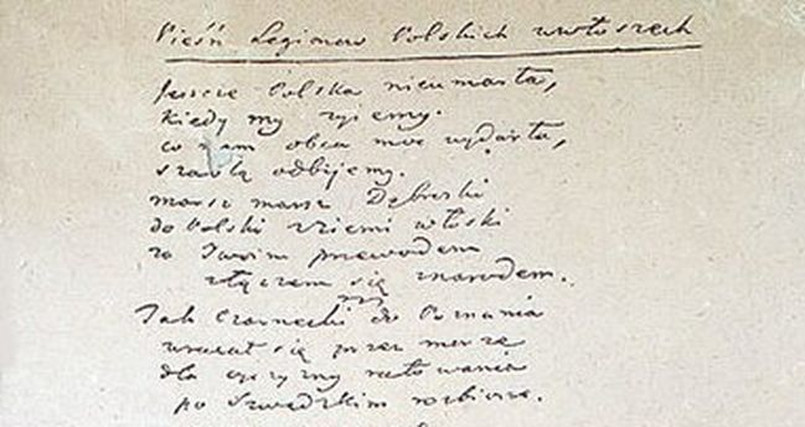 Pieśń Legionów Polskich wewłoszech
Jeszcze Polska nieumarła,
kiedy my żyiemy.
co nam obca moc wydarła,
szablą odbijemy.
marsz marsz Dębroski
do Polski zziemi włoski
za Twoim przewodem
złączem się znarodem.
Jak Czarnecki do Poznania
wracał się przez morze
dla oyczyzny ratowania
po szwedzkim rozbiorze.